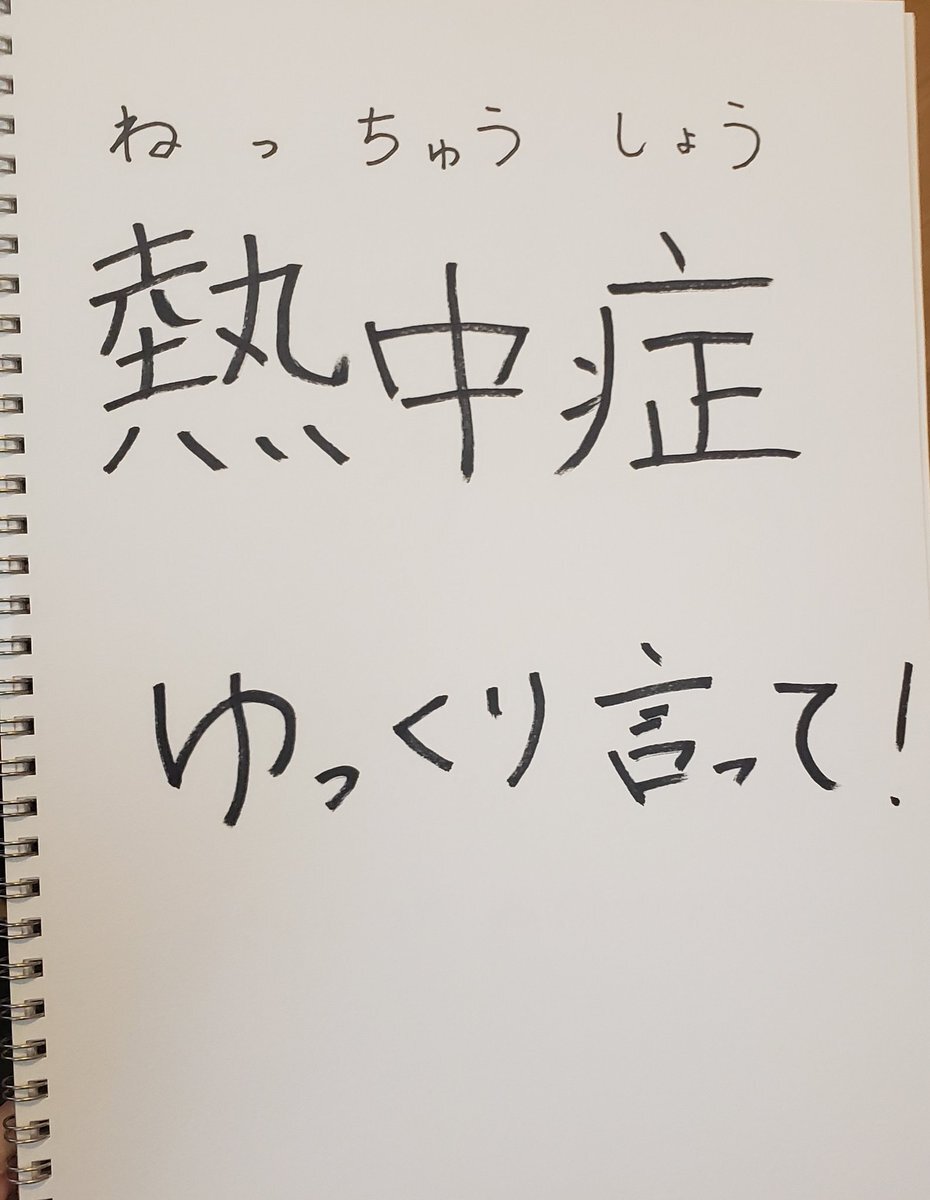 ねっちゅうしょう
熱中症
ゆっくり言って!